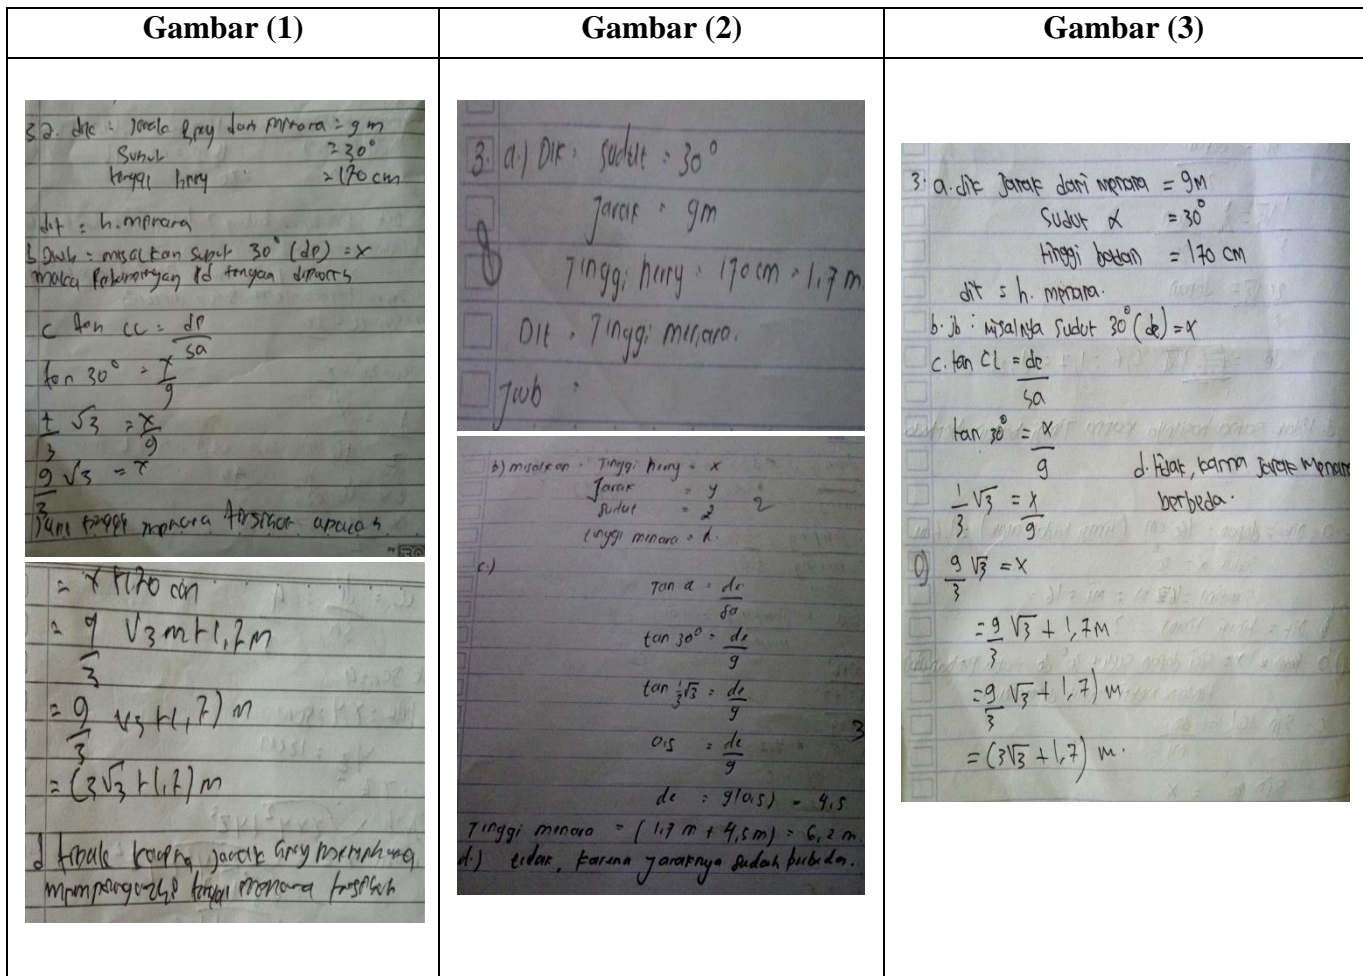 Gambar (1)
3 a. dik : jarak hery dari menara = 9 m
Sudut = 30°
tinggi hery = 170 cm
dit = h. menara
b Jwb = misalkan sudut 30° (de) = x
maka
c tan = de
sa
tan 30° = x
9
1 √3 = x
3 9
9 √3 = x
3
Jadi tinggi menara tersebut adalah
= x + 170 cm
= 9 √3 m + 1,7 m
3
= 9 √3 + 1,7) m
3
= (3√3 + 1,7) m
d tidak karena jarak hery
mempengaruhi tinggi menara tersebut
Gambar (2)
3. a.) Dik : sudut = 30°
Jarak = 9m
8
Tinggi herry = 170 cm = 1,7 m
Dit = Tinggi menara.
Jwb :
b) misalkan = Tinggi herry = x
Jarak = y
2
sudut = z
tinggi menara = h.
c.)
Tan a = de
sa
tan 30° = de
9
tan 1/3 √3 = de
9
3
0,5 = de
9
de = 9(0,5) = 4,5
Tinggi menara = (1,7 m + 4,5 m) = 6,2 m.
d.) tidak, karena jaraknya sudah berbeda.
Gambar (3)
3. a. dik jarak dari menara = 9M
Sudut α = 30°
tinggi badan = 170 cm
dit = h. menara.
b. jb : misalnya sudut 30° (de) = x
c. tan CL = de
sa
tan 30° = x
9
d. tidak, karna jarak menara
berbeda.
1 √3 = x
3 9
9 √3 = x
3
= 9 √3 + 1,7 M
3
= 9 √3 + 1,7) m
3
= (3√3 + 1,7) m.